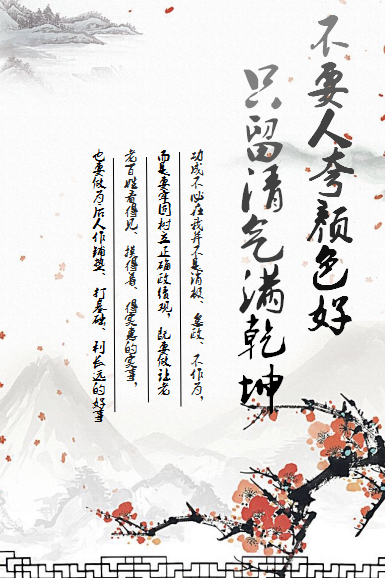 不要人夸颜色好
只留清气满乾坤
功成不必在我并不是消极、怠政、不作为，
而是要牢固树立正确政绩观，既要做让老
老百姓看得见、摸得着、得实惠的实事，
也要做为后人作铺垫、打基础、利长远的好事